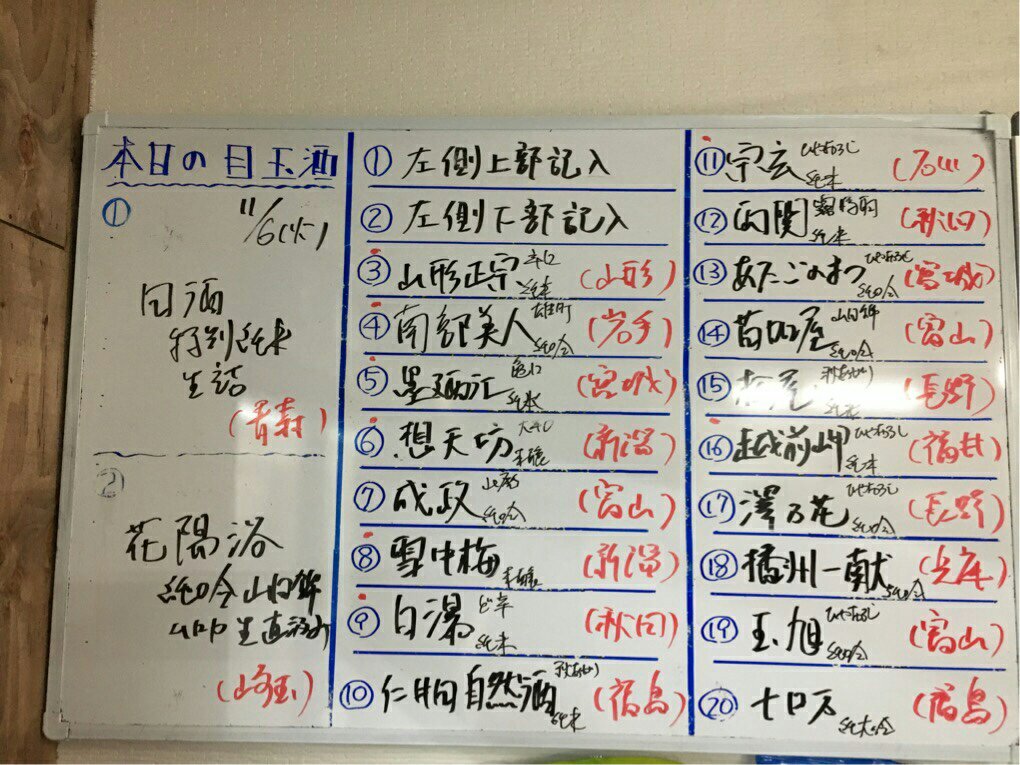 本日の目玉酒
①
11/6(火)
田酒
特別純米
生詰
(青森)
②
花陽浴
純吟 山田錦
生直汲み
(埼玉)
① 左側上部記入
② 左側下部記入
③ 山形正宗 辛口 純米 (山形)
④ 南部美人 雄町 純吟 (岩手)
⑤ 墨廼江 純米 (宮城)
⑥ 想天坊 本醸 (新潟)
⑦ 成政 純吟 (富山)
⑧ 雪中梅 本醸 (新潟)
⑨ 白瀑 ど辛 純米 (秋田)
⑩ 仁井田自然酒 秋あがり 純米 (福島)
⑪ 宗玄 ひやおろし 純米 (石川)
⑫ 両関 純米 (秋田)
⑬ あたごのまつ ひやおろし 純吟 (宮城)
⑭ 苗加屋 山田錦 純吟 (富山)
⑮ 秋あがり 純米 (長野)
⑯ 越前岬 ひやおろし 純米 (福井)
⑰ 澤乃花 ひやおろし 純吟 (長野)
⑱ 播州一献 純吟 (兵庫)
⑲ 玉旭 ひやおろし 純吟 (富山)
⑳ 七ロ万 純大吟 (福島)